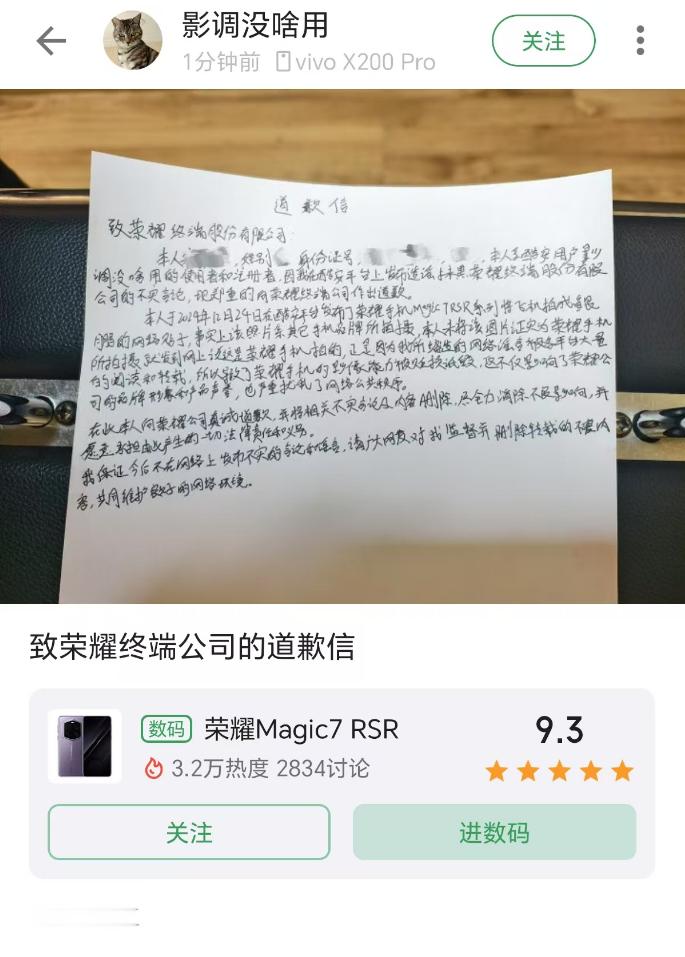 影调没啥用
1分钟前 vivo X200 Pro
关注
道歉信
致荣耀终端股份有限公司:
本人 性别 身份证号 本人系酷安用户影
调没啥用的使用者和注册者,因我在酷安平台上发布造谣抹黑荣耀终端股份有限
公司的不实言论,现郑重的向荣耀终端公司作出道歉。
本人于2024年12月24日在酷安平台发布了荣耀手机Magic7RSR系列将飞机拍成
的网络帖子,事实上该照片系其它手机品牌所拍摄,本人未将该图片证实为荣耀手机
所拍摄就发到网上说这是荣耀手机拍的,正是因为我所编造的网络谣言被各平台大量
的阅读和转载,所以导致了荣耀手机的影像能力被贬损诋毁,这不仅影响了荣耀公
司的品牌形象和产品声誉,也严重扰乱了网络公共秩序。
在此本人向荣耀公司真诚道歉,并将相关不实言论及内容删除,尽全力消除不良影响,并
愿意承担由此产生的一切法律责任和义务。
我保证今后不在网络上发布不实的言论和信息,请广大网友对我监督并删除转载的不实内
容,共同维护良好的网络环境。
致荣耀终端公司的道歉信
数码 荣耀Magic7 RSR
9.3
3.2万热度 2834讨论
关注
进数码